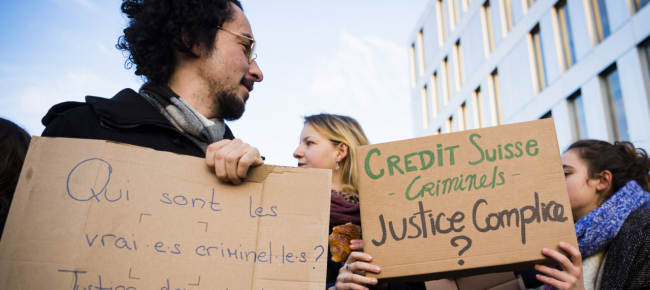 Qui sont les
vrai·e·s criminel·le·s ?
Justice
CREDIT Suisse
- Criminels -
Justice Complice
?